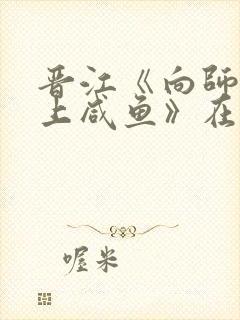 晋江《向师
上咸鱼》在
喔米